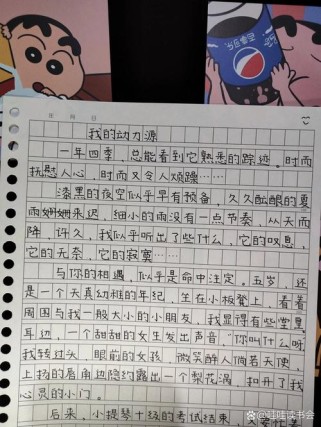 我的动力源
一年四季，总能看到它熟悉的踪迹。时而
抚慰人心，时而又令人烦躁……
漆黑的夜空似乎早有预备，久久酝酿的夏
雨姗姗来迟，细小的雨没有一点节奏，从天而
降，许久，我似乎听出了些什么，它的叹息，
它的无奈，它的寂寞……
与你的相遇，似乎是命中注定。五岁，还
是一个天真幼稚的年纪，坐在小板凳上，看着
周围与我一般大的小朋友，我显得有些
耳边，一个甜甜的女生发出声音，“你叫什么呀
我转过头，眼前的女孩，微笑醉人倘若天使，
上扬的唇角边隐约露出一个梨花涡，扣开了我
心灵的小门。
后来，小提琴十级的考试结束，又要忙着